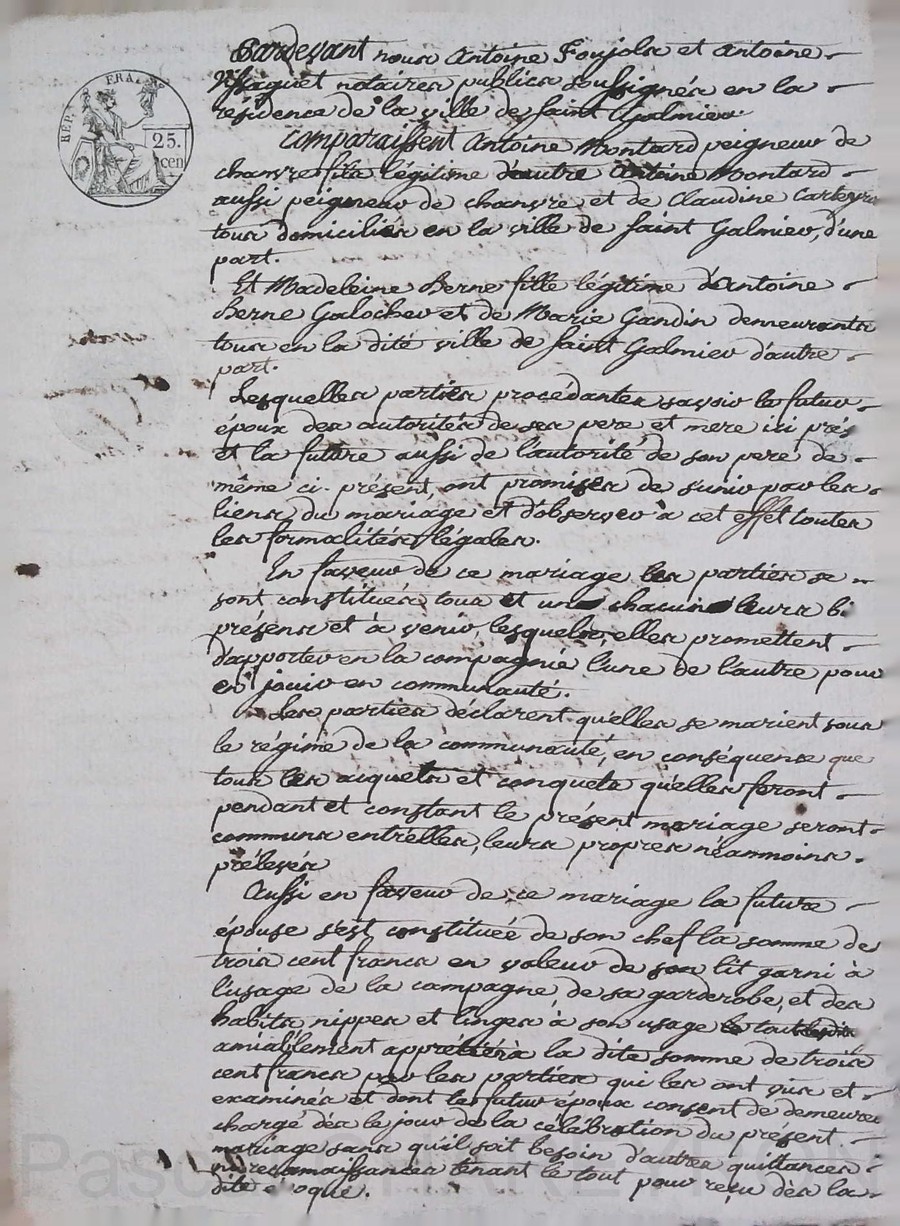 REP. FRA.
25.
cen
Pardevant nous Antoine Foujols et Antoine
notaires publics soussignés en la
résidence de la ville de Saint Galmier
Comparaissent Antoine Montard peigneur de
chanvre fils légitime d'autre Antoine Montard
aussi peigneur de chanvre et de Claudine
tous domiciliés en la ville de Saint Galmier, d'une
part.
Et Madeleine Berne fille légitime d'Antoine
Berne Galocher et de Marie Gandin demeurants
tous en la dite ville de Saint Galmier d'autre
part.
Lesquelles parties procédantes savoir le futur
époux des autorités de ses pere et mere ici prés
et la future aussi de l'autorité de son pere de
même ci-présent, ont promises de s'unir par les
liens du mariage et d'observer à cet effet toutes
les formalités légales.
En faveur de ce mariage les parties se
sont constituées tous et un chacun leurs bi
présens et à venir, lesquels, elles promettent
d'apporter en la compagnie l'une de l'autre pour
en jouir en communauté.
Les parties déclarent qu'elles se marient sous
le régime de la communauté, en conséquence que
tous les acquets et conquets qu'elles feront
pendant et constant le présent mariage seront
communs entr'elles, leurs propres néanmoins
prélevés
Aussi en faveur de ce mariage la future
épouse s'est constituée de son chef la somme de
trois cent francs en valeur de son lit garni à
l'usage de la campagne, de sa garderobe, et des
habits, nippes et linges à son usage le tout
amiablement appréciés à la dite somme de trois
cent francs par les parties qui les ont vus et
examinés et dont le futur époux consent de demeurer
chargé dès le jour de la célébration du présent
mariage sans qu'il soit besoin d'autres quittances
ni reconnaissances tenant le tout pour reçu dès la
dite époque.